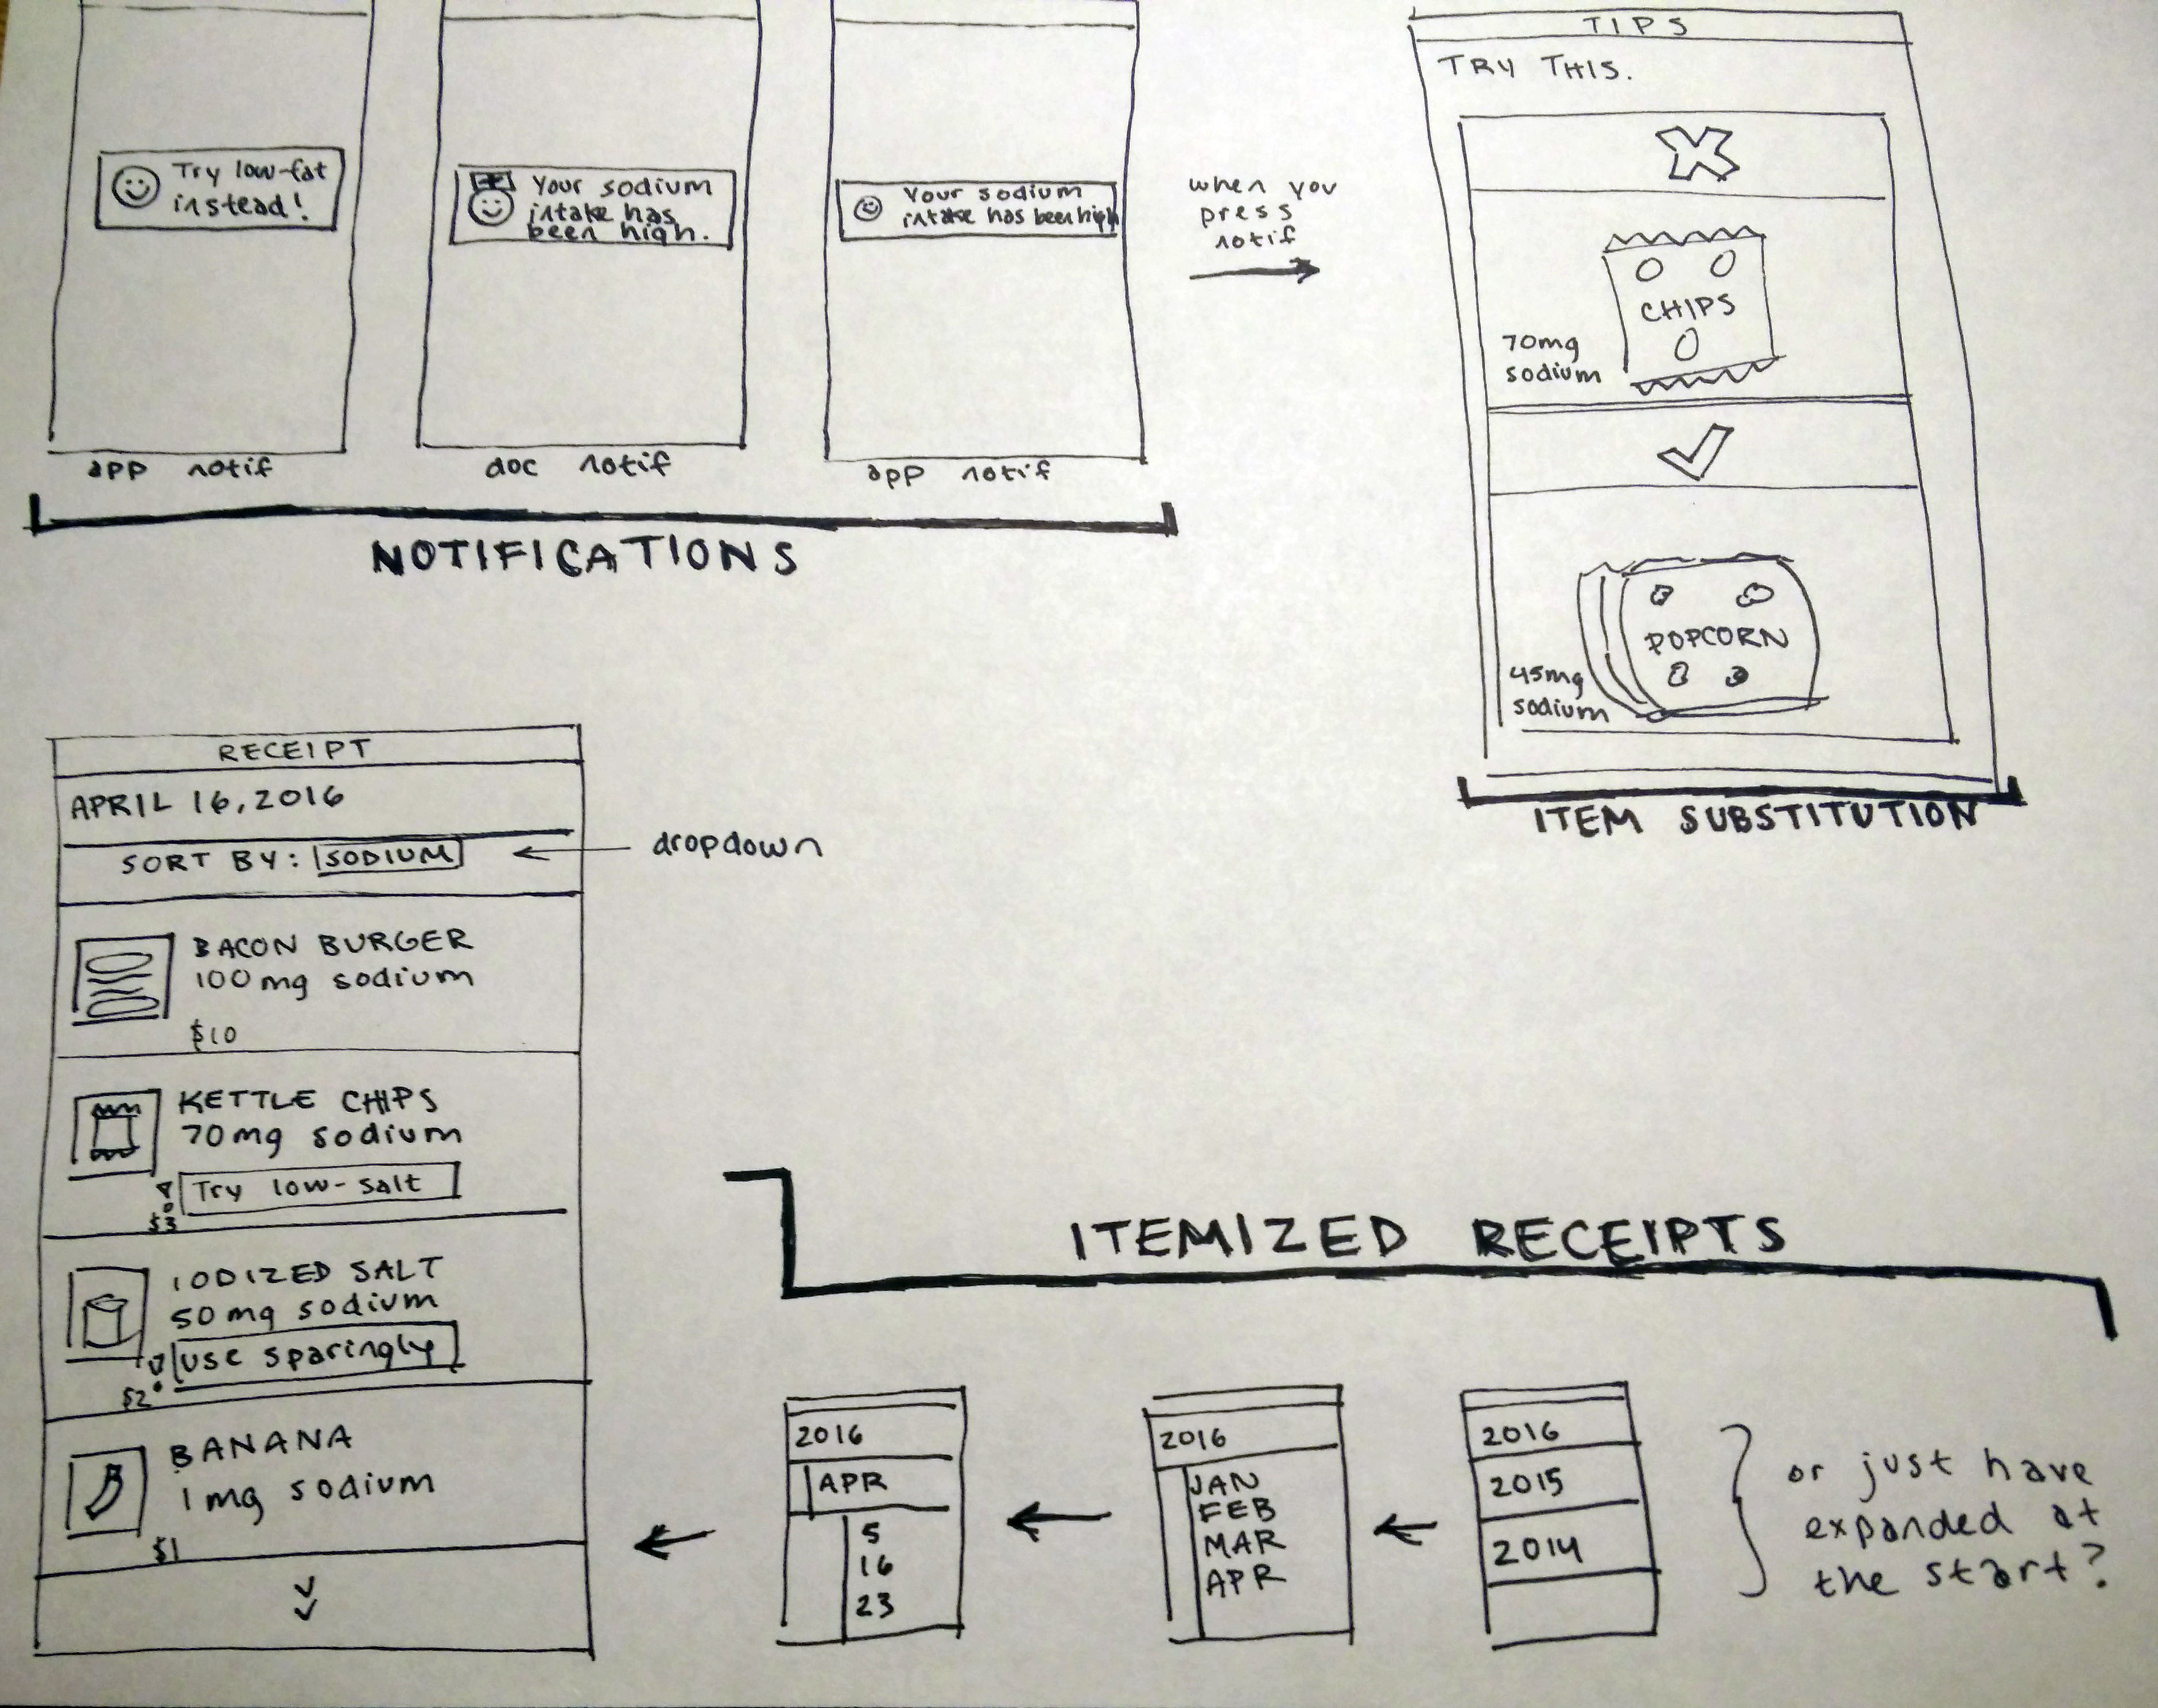 Try low-fat
instead!
app notif
Your sodium
intake has
been high.
doc notif
Your sodium
intake has been high
app notif
NOTIFICATIONS
when you
press
notif
TIPS
TRY THIS.
CHIPS
70mg
sodium
POPCORN
45mg
sodium
ITEM SUBSTITUTION
RECEIPT
APRIL 16, 2016
SORT BY: SODIUM
dropdown
BACON BURGER
100mg sodium
$10
KETTLE CHIPS
70mg sodium
Try low-salt
$3
IODIZED SALT
50mg sodium
use sparingly
$2
BANANA
1mg sodium
$1
ITEMIZED RECEIPTS
2016
APR
5
16
23
2016
JAN
FEB
MAR
APR
2016
2015
2014
or just have
expanded at
the start?